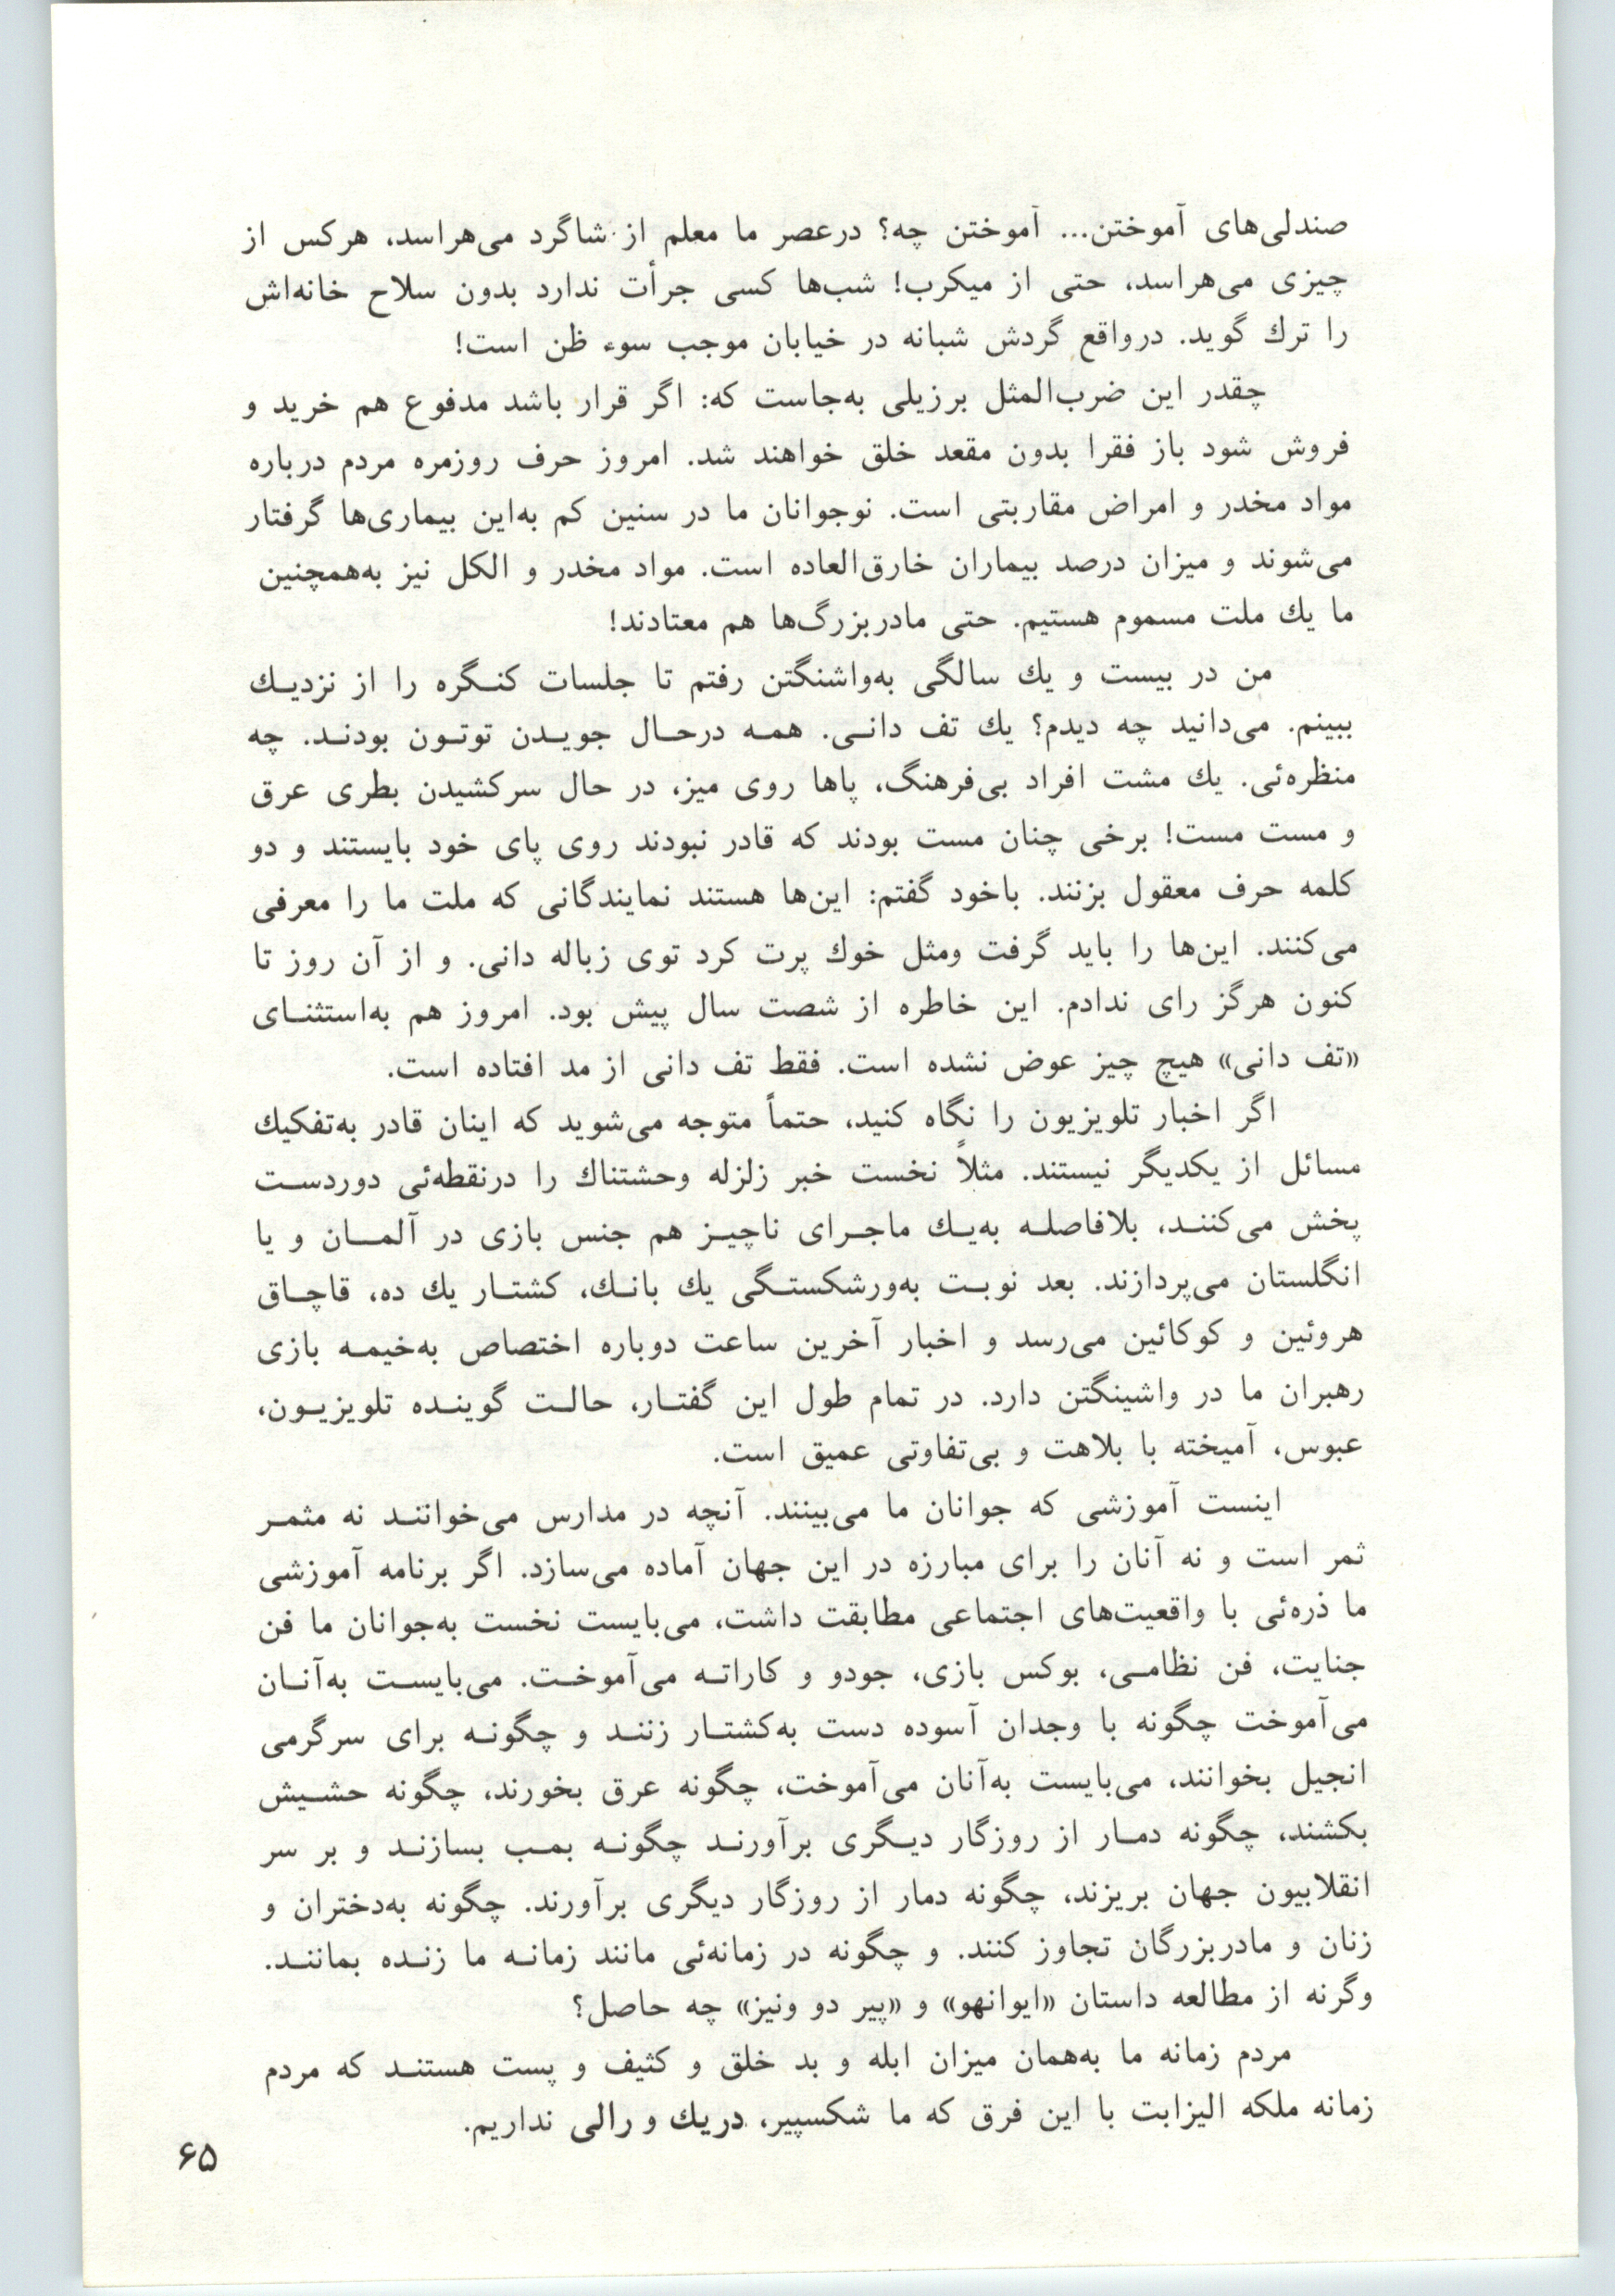 صندلی‌های آموختن... آموختن چه؟ درعصر ما معلم از شاگرد می‌هراسد، هرکس از
چیزی می‌هراسد، حتی از میکرب! شب‌ها کسی جرأت ندارد بدون سلاح خانه‌اش
را ترك گوید. درواقع گردش شبانه در خیابان موجب سوء ظن است!
چقدر این ضرب‌المثل برزیلی به‌جاست که: اگر قرار باشد مدفوع هم خرید و
فروش شود باز فقرا بدون مقعد خلق خواهند شد. امروز حرف روزمره مردم درباره
مواد مخدر و امراض مقاربتی است. نوجوانان ما در سنین کم به‌این بیماری‌ها گرفتار
می‌شوند و میزان درصد بیماران خارق‌العاده است. مواد مخدر و الکل نیز به‌همچنین
ما یك ملت مسموم هستیم. حتی مادربزرگ‌ها هم معتادند!
من در بیست و یك سالگی به‌واشنگتن رفتم تا جلسات کنگره را از نزدیك
ببینم. می‌دانید چه دیدم؟ یك تف دانی. همه درحال جویدن توتون بودند. چه
منظره‌ئی. یك مشت افراد بی‌فرهنگ، پاها روی میز، در حال سرکشیدن بطری عرق
و مست مست! برخی چنان مست بودند که قادر نبودند روی پای خود بایستند و دو
کلمه حرف معقول بزنند. باخود گفتم: این‌ها هستند نمایندگانی که ملت ما را معرفی
می‌کنند. این‌ها را باید گرفت ومثل خوك پرت کرد توی زباله دانی. و از آن روز تا
کنون هرگز رای ندادم. این خاطره از شصت سال پیش بود. امروز هم به‌استثنای
«تف دانی» هیچ چیز عوض نشده است. فقط تف دانی از مد افتاده است.
اگر اخبار تلویزیون را نگاه کنید، حتماً متوجه می‌شوید که اینان قادر به‌تفکیك
مسائل از یکدیگر نیستند. مثلاً نخست خبر زلزله وحشتناك را درنقطه‌ئی دوردست
پخش می‌کنند، بلافاصله به‌یك ماجرای ناچیز هم جنس بازی در آلمان و یا
انگلستان می‌پردازند. بعد نوبت به‌ورشکستگی یك بانك، کشتار یك ده، قاچاق
هروئین و کوکائین می‌رسد و اخبار آخرین ساعت دوباره اختصاص به‌خیمه بازی
رهبران ما در واشینگتن دارد. در تمام طول این گفتار، حالت گوینده تلویزیون،
عبوس، آمیخته با بلاهت و بی‌تفاوتی عمیق است.
اینست آموزشی که جوانان ما می‌بینند. آنچه در مدارس می‌خوانند نه مثمر
ثمر است و نه آنان را برای مبارزه در این جهان آماده می‌سازد. اگر برنامه آموزشی
ما ذره‌ئی با واقعیت‌های اجتماعی مطابقت داشت، می‌بایست نخست به‌جوانان ما فن
جنایت، فن نظامی، بوکس بازی، جودو و کاراته می‌آموخت. می‌بایست به‌آنان
می‌آموخت چگونه با وجدان آسوده دست به‌کشتار زنند و چگونه برای سرگرمی
انجیل بخوانند، می‌بایست به‌آنان می‌آموخت، چگونه عرق بخورند، چگونه حشیش
بکشند، چگونه دمار از روزگار دیگری برآورند چگونه بمب بسازند و بر سر
انقلابیون جهان بریزند، چگونه دمار از روزگار دیگری برآورند. چگونه به‌دختران و
زنان و مادربزرگان تجاوز کنند. و چگونه در زمانه‌ئی مانند زمانه ما زنده بمانند.
وگرنه از مطالعه داستان «ایوانهو» و «پیر دو ونیز» چه حاصل؟
مردم زمانه ما به‌همان میزان ابله و بد خلق و کثیف و پست هستند که مردم
زمانه ملکه الیزابت با این فرق که ما شکسپیر، دریك و رالی نداریم.
۶۵